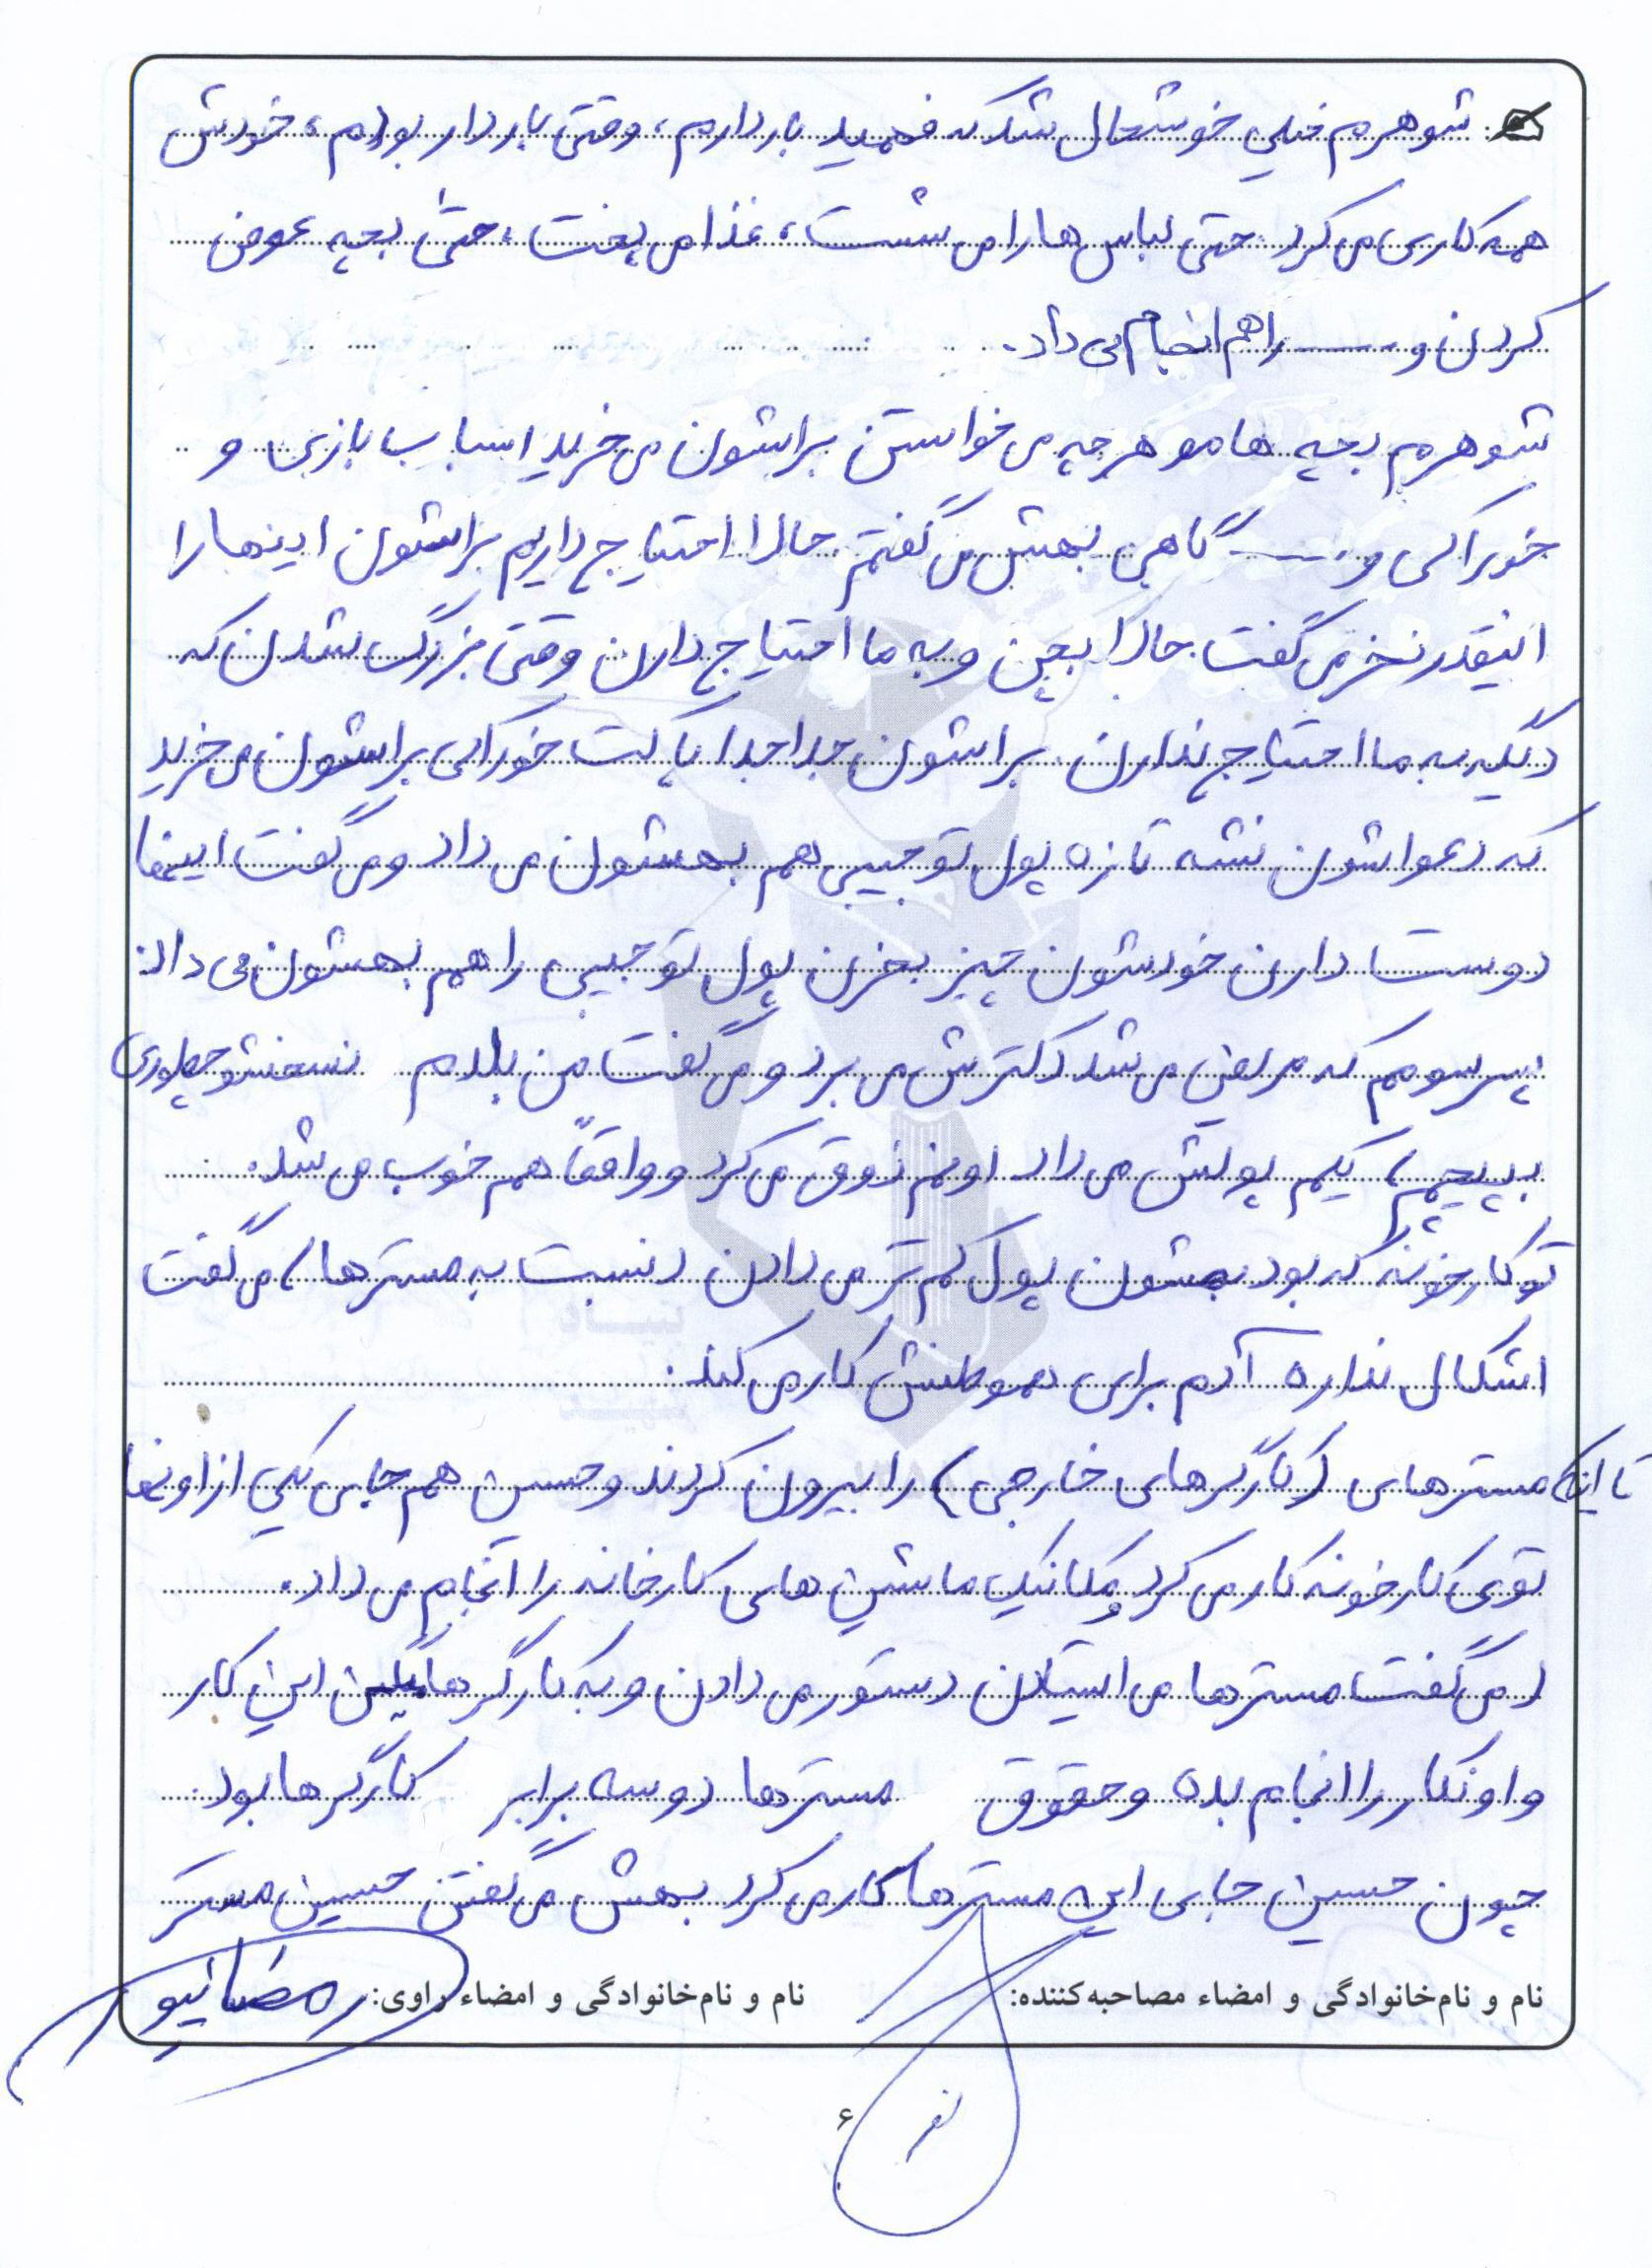 شوهرم خیلی خوشحال شد که فهمید باردارم، وقتی باردار بودم، خودش
همه کاری می کرد حتی لباس ها را می شست، غذا می پخت، حتی بچه عوض
کردن و ـــــ را هم انجام می داد.
شوهرم بچه هامو هر چه می خواستن براشون می خرید اسباب بازی و
خوراکی و ـــــ گاهی بهش می گفتم حالا احتیاج داریم براشون اینها را
اینقدر نخر می گفت حالا بچن و به ما احتیاج دارن وقتی بزرگ شدن که
دیگه به ما احتیاج ندارن. براشون جدا جدا پاکت خوراکی براشون می خرید
که دعواشون نشه تازه پول تو جیبی هم بهشون می داد و می گفت اینها
دوست دارن خودشون چیز بخرن پول تو جیبی را هم بهشون می داد.
پسر سومم که مریض می شد دکترش می برد و می گفت من بلدم نسخشو چطوری
بپیچم، یکم پولش می داد اونم ذوق می کرد و واقعاً هم خوب می شد.
تو کارخونه که بود بهشون پول کم تر می دادن (نسبت به مسترها) می گفت
اشکال نداره آدم برای هموطنش کار می کند.
تا اینکه مسترهای (کارگرهای خارجی) را بیرون کردند و حسین هم جای یکی از اونها
توی کارخونه کار می کرد و مکانیک ماشین های کارخانه را انجام می داد.
(می گفت مسترها می ایستادن دستور می دادن و به کارگرها می گن این کار
و اونکار را انجام بده و حقوق مسترها دو سه برابر کارگرها بود.
چون حسین جای این مسترها کار می کرد بهش می گفتن حسین مستر
نام و نام‌خانوادگی و امضاء مصاحبه‌کننده:
نام و نام‌خانوادگی و امضاء راوی:
۶